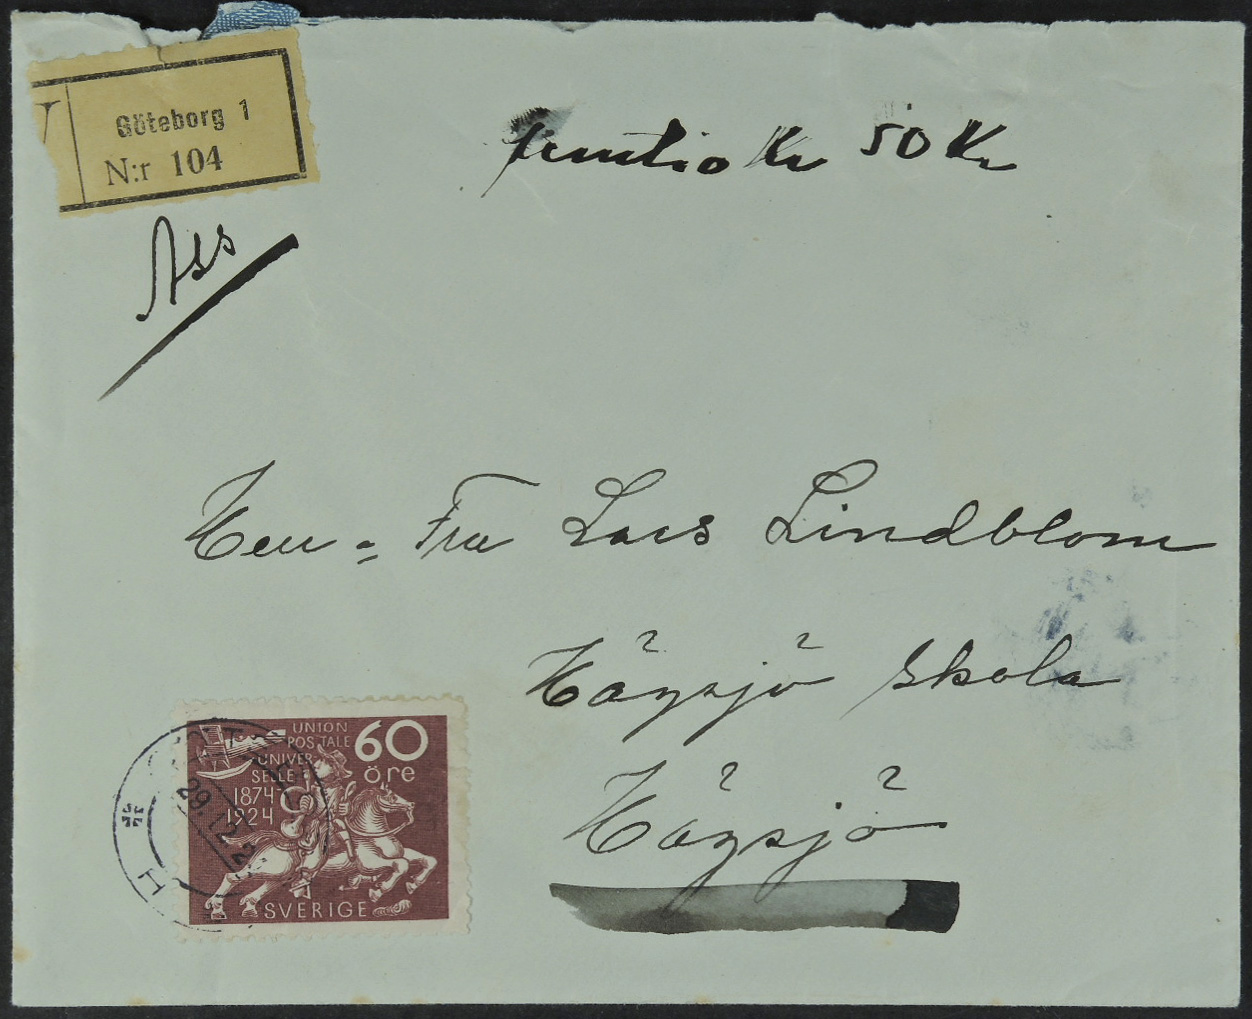 V
Göteborg 1
N:r 104
femtio Kr 50 Kr
Ass
Herr = Fru Lars Lindblom
Hägsjö Skola
Hägsjö
UNION
POSTALE
UNIVER
SELLE
1874
1924
60
öre
SVERIGE
29.12.2